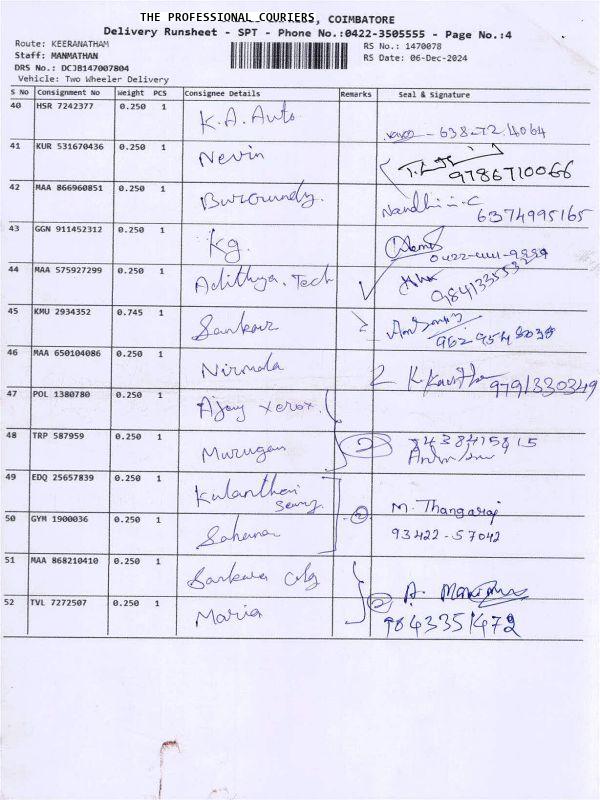 THE PROFESSIONAL COURIERS, COIMBATORE
Delivery Runsheet - SPT - Phone No.:0422-3505555 - Page No.:4
Route: KEERANATHAM RS No.: 1470078
Staff: MANMATHAN RS Date: 06-Dec-2024
DRS No.: DCJB147007804
Vehicle: Two Wheeler Delivery
S No Consignment No Weight PCS Consignee Details Remarks Seal & Signature
40 HSR 7242377 0.250 1 K.A. Auto
41 KUR 531670436 0.250 1 Nevin 9786710066
42 MAA 866960851 0.250 1 Burgundy. Nandhini.C 6374995165
43 GGN 911452312 0.250 1 Kg.
44 MAA 575927299 0.250 1 Adithya. Tech
45 KMU 2934352 0.745 1 Sankar
46 MAA 650104086 0.250 1 Nirmala K. Kavitha 9791330349
47 POL 1380780 0.250 1 Ajay xerox.
48 TRP 587959 0.250 1 Murugan 2
49 EDQ 25657839 0.250 1 Kulanthai M. Thangaraj
50 GYM 1900036 0.250 1 Sahana 2 93422-57042
51 MAA 868210410 0.250 1 Sankara clg
52 TVL 7272507 0.250 1 Maria 2 9843351472